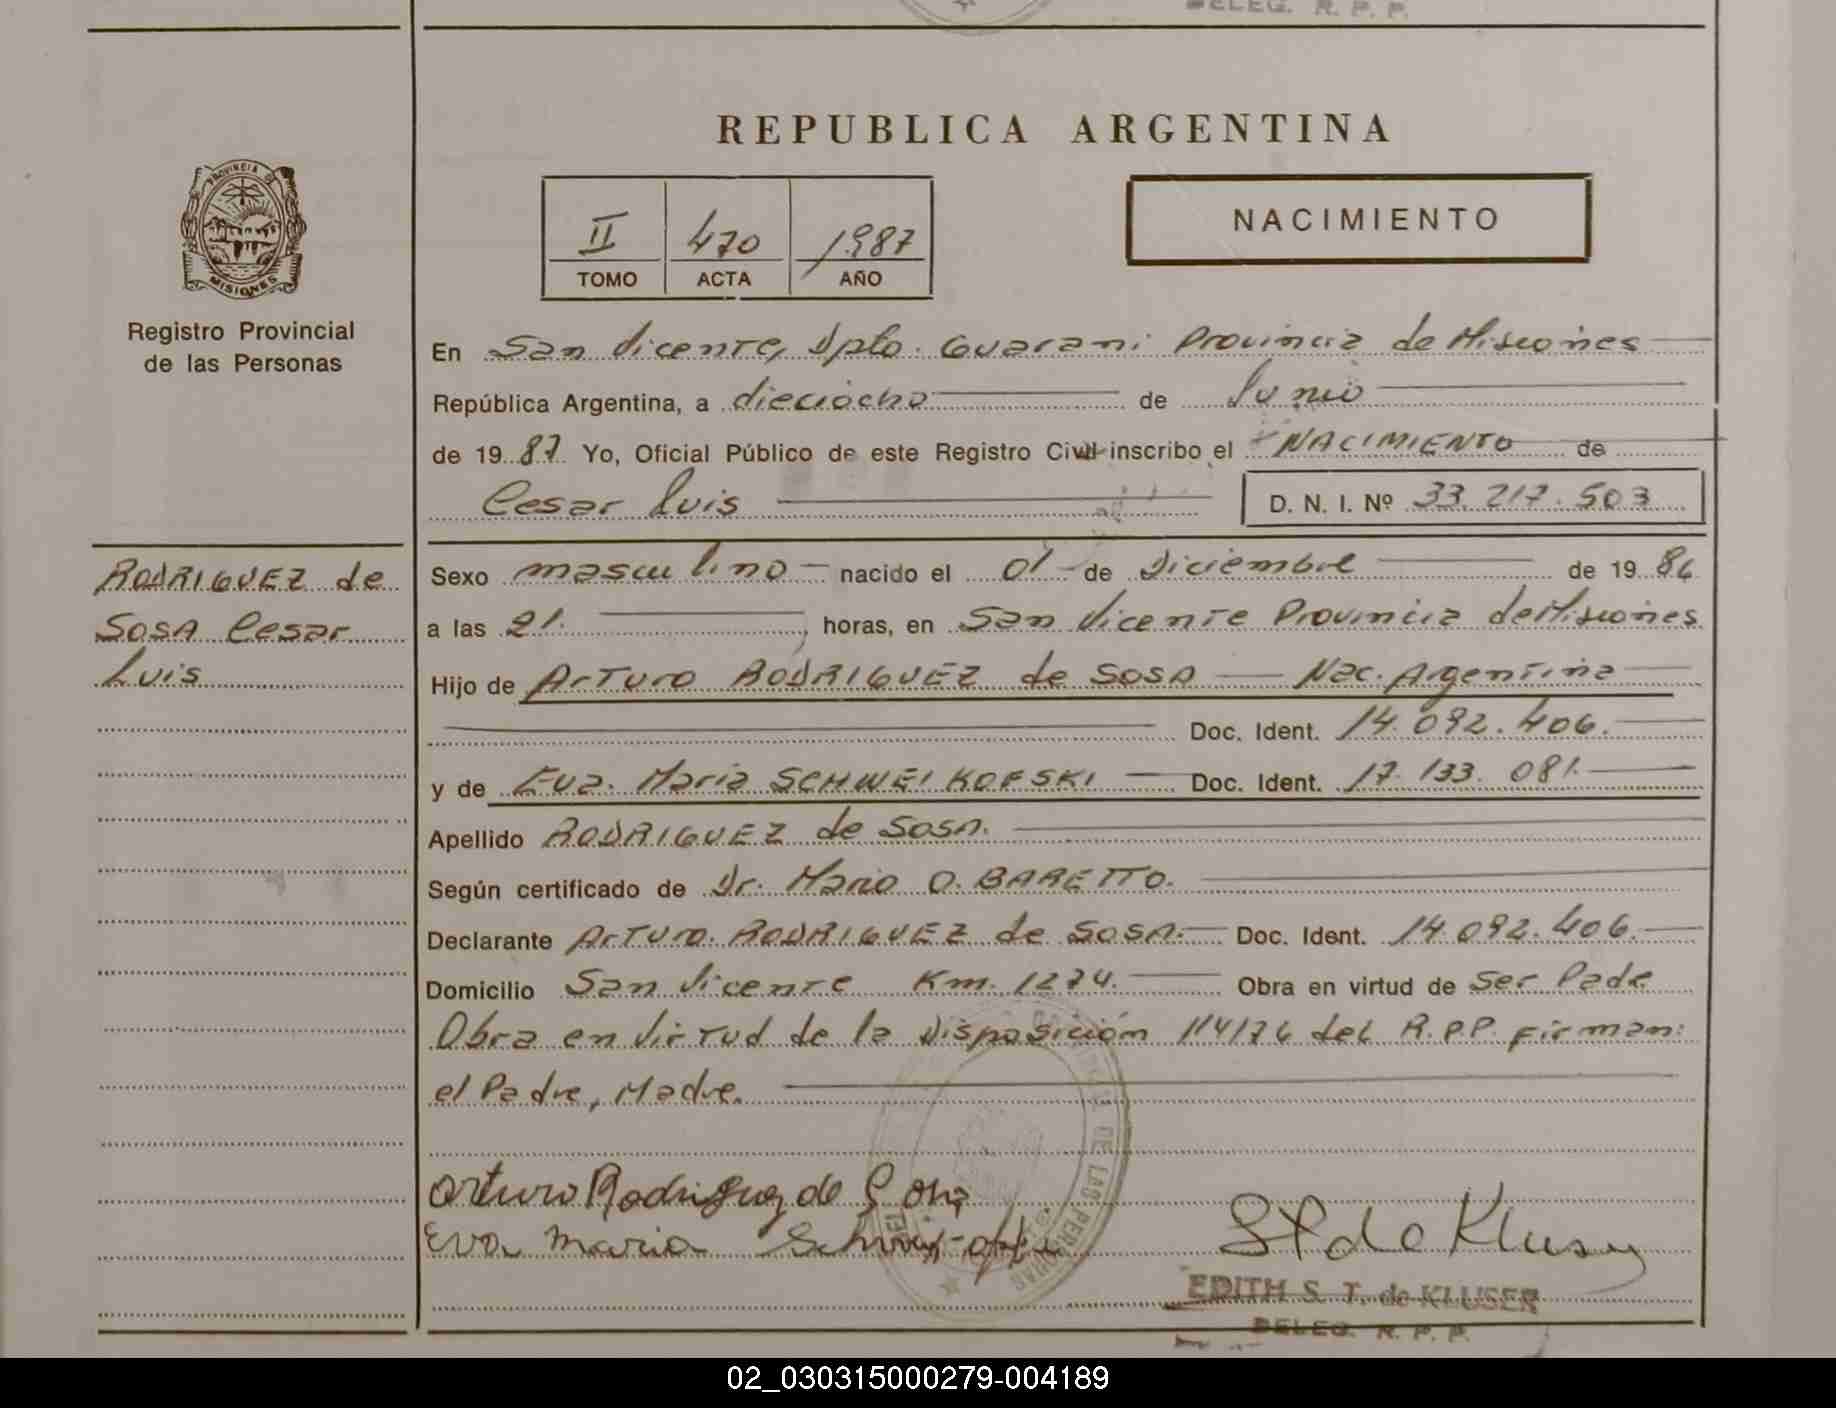 DELEG. R. P. P.
REPUBLICA ARGENTINA
PROVINCIA DE
MISIONES
Registro Provincial
de las Personas
II 470 1987
TOMO ACTA AÑO
NACIMIENTO
En San Vicente, Dpto. Guarani Provincia de Misiones
República Argentina, a dieciocho de Junio
de 19 87 Yo, Oficial Público de este Registro Civil inscribo el NACIMIENTO de
Cesar Luis D. N. I. Nº 33.217.503
RODRIGUEZ de
Sosa Cesar
Luis
Sexo masculino nacido el 01 de Diciembre de 19 86
a las 21. horas, en San Vicente Provincia de Misiones
Hijo de Arturo RODRIGUEZ de SOSA Nac. Argentina
Doc. Ident. 14.092.406.
y de Eva. Maria SCHWEIKOFSKI Doc. Ident. 17.133.081.
Apellido RODRIGUEZ de Sosa.
Según certificado de Dr. Mario O. BARETTO.
Declarante Arturo. RODRIGUEZ de SOSA. Doc. Ident. 14.092.406.
Domicilio San Vicente Km. 1274. Obra en virtud de Ser Padre
Obra en Virtud de la Disposición 114/76 del R.P.P. Firman:
el Padre, Madre.
Arturo Rodriguez de Sosa
Eva Maria
DE LAS PERSONAS
S T de Kluser
EDITH S. T. de KLUSER
DELEG. R. P. P.
02_030315000279-004189